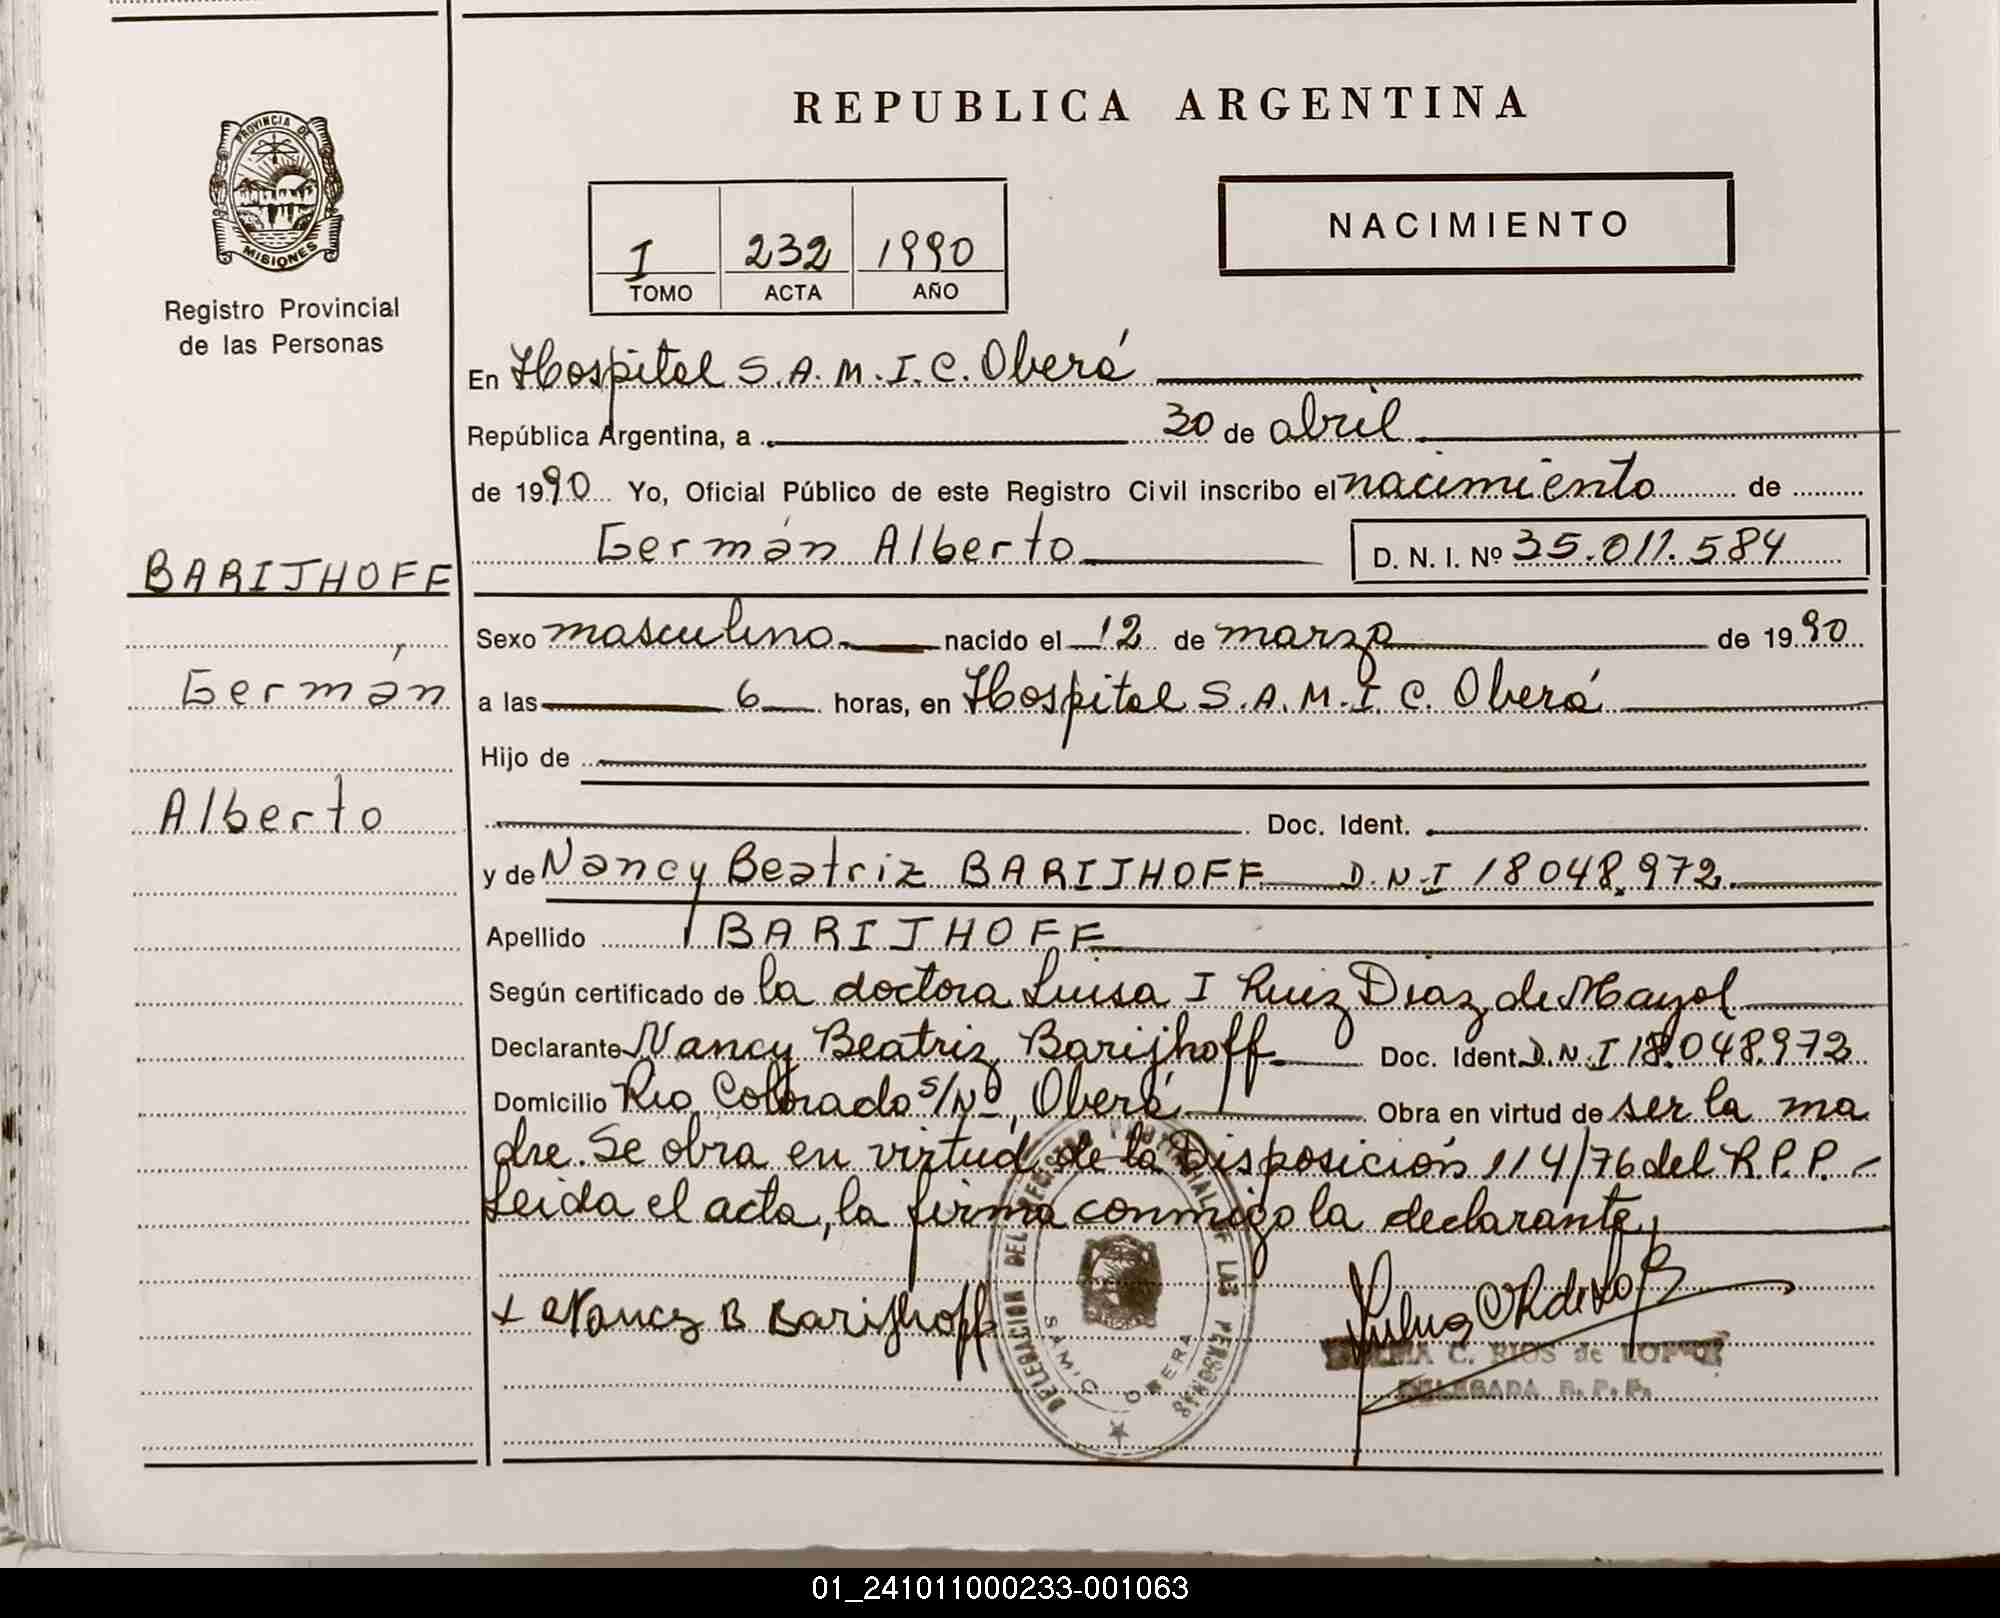 REPUBLICA ARGENTINA
PROVINCIA DE
MISIONES
Registro Provincial
de las Personas
I 232 1990
TOMO ACTA AÑO
NACIMIENTO
En Hospital S.A.M.I.C. Oberá
República Argentina, a 30 de abril
de 1990 Yo, Oficial Público de este Registro Civil inscribo el nacimiento de
Germán Alberto D. N. I. Nº 35.011.584
BARIJHOFF
Germán
Alberto
Sexo masculino nacido el 12 de marzo de 1990
a las 6 horas, en Hospital S.A.M.I.C. Oberá
Hijo de
Doc. Ident.
y de Nancy Beatriz BARIJHOFF D.N.I 18048.972
Apellido BARIJHOFF
Según certificado de la doctora Luisa I Ruiz Diaz de Mayol
Declarante Nancy Beatriz Barijhoff Doc. Ident D.N.I 18.048.972
Domicilio Rio Colorado s/Nº, Oberá Obra en virtud de ser la ma
dre. Se obra en virtud de la Disposición 114/76 del R.P.P.-
Leida el acta, la firma conmigo la declarante,
+ Nancy B Barijhoff
DELEGACION DEL REGISTRO PROVINCIAL DE LAS PERSONAS
SAMIC OBERA
C. RIOS de LOPEZ
DELEGADA R. P. P.
01_241011000233-001063